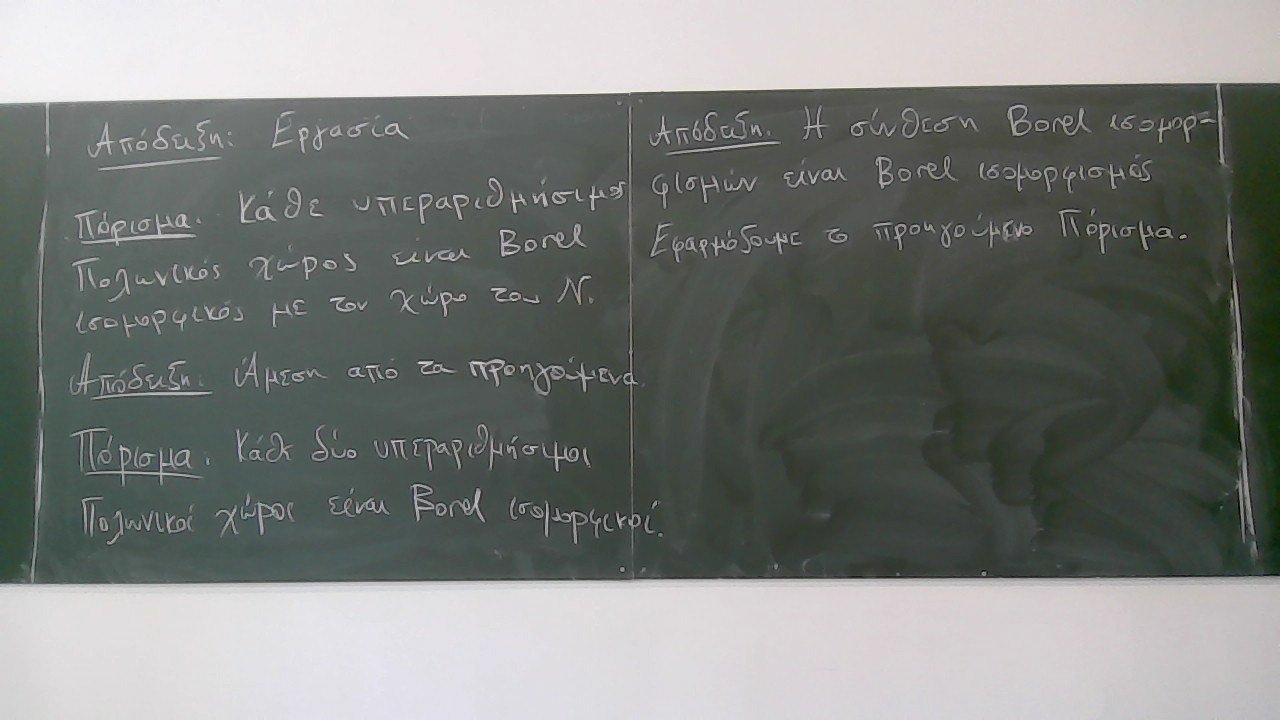 Απόδειξη: Εργασία
Πόρισμα. Κάθε υπεραριθμήσιμος
Πολωνικός χώρος είναι Borel
ισομορφικός με τον χώρο του N.
Απόδειξη. Άμεση από τα προηγούμενα.
Πόρισμα. Κάθε δύο υπεραριθμήσιμοι
Πολωνικοί χώροι είναι Borel ισομορφικοί.
Απόδειξη. Η σύνθεση Borel ισομορ-
φισμών είναι Borel ισομορφισμός
Εφαρμόζουμε το προηγούμενο Πόρισμα.